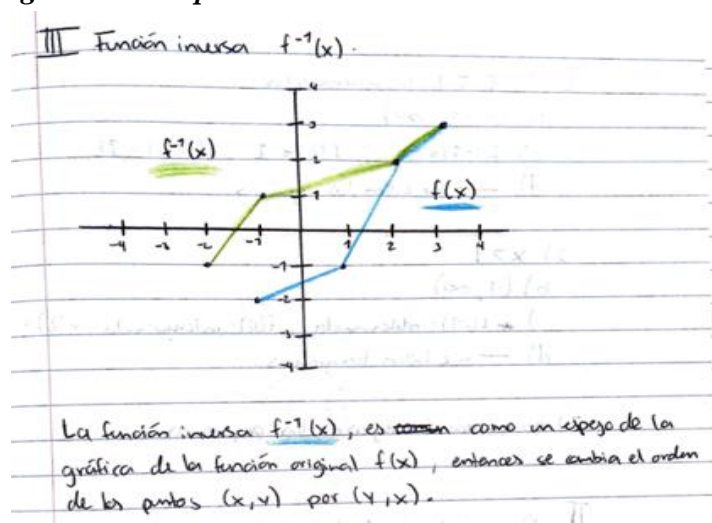 III Función inversa f⁻¹(x).
4
3
2
f⁻¹(x)
1
f(x)
-4 -3 -2 -1 1 2 3 4
-1
-2
-3
-4
La función inversa f⁻¹(x), es como un espejo de la
gráfica de la función original f(x), entonces se cambia el orden
de los puntos (x,y) por (y,x).